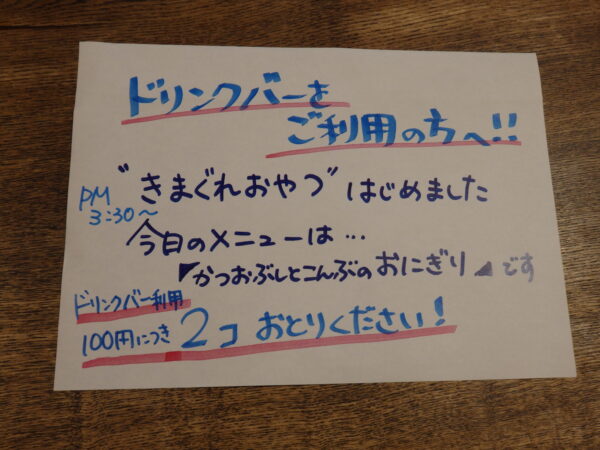 ドリンクバーを
ご利用の方へ!!
"きまぐれおやつ" はじめました
PM
3:30～
今日のメニューは…
◤かつおぶしとこんぶの おにぎり◢です
ドリンクバー利用
100円につき 2コ おとりください!